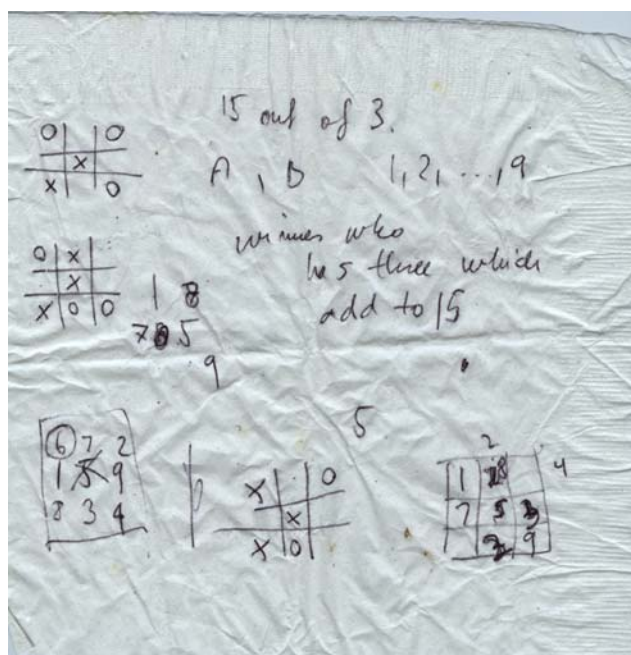 15 out of 3.
A, B 1, 2, ..., 9
winner who
has three which
add to 15
O O
X
X O
O X
X
X O O
1 8
7 5
9
5
6 7 2
1 5 9
8 3 4
X O
X
X O
2
1 8 4
7 5 3
9